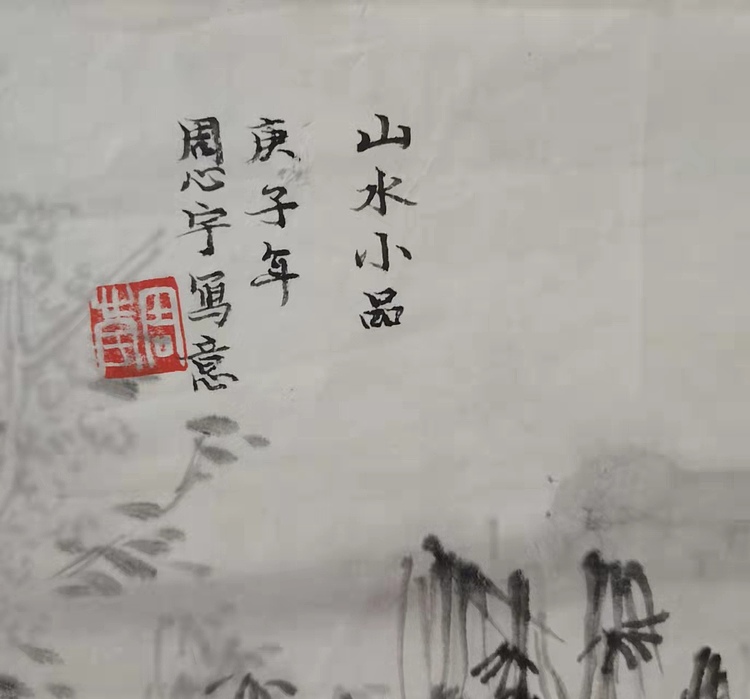 山水小品
庚子年
周心宇寫意
周